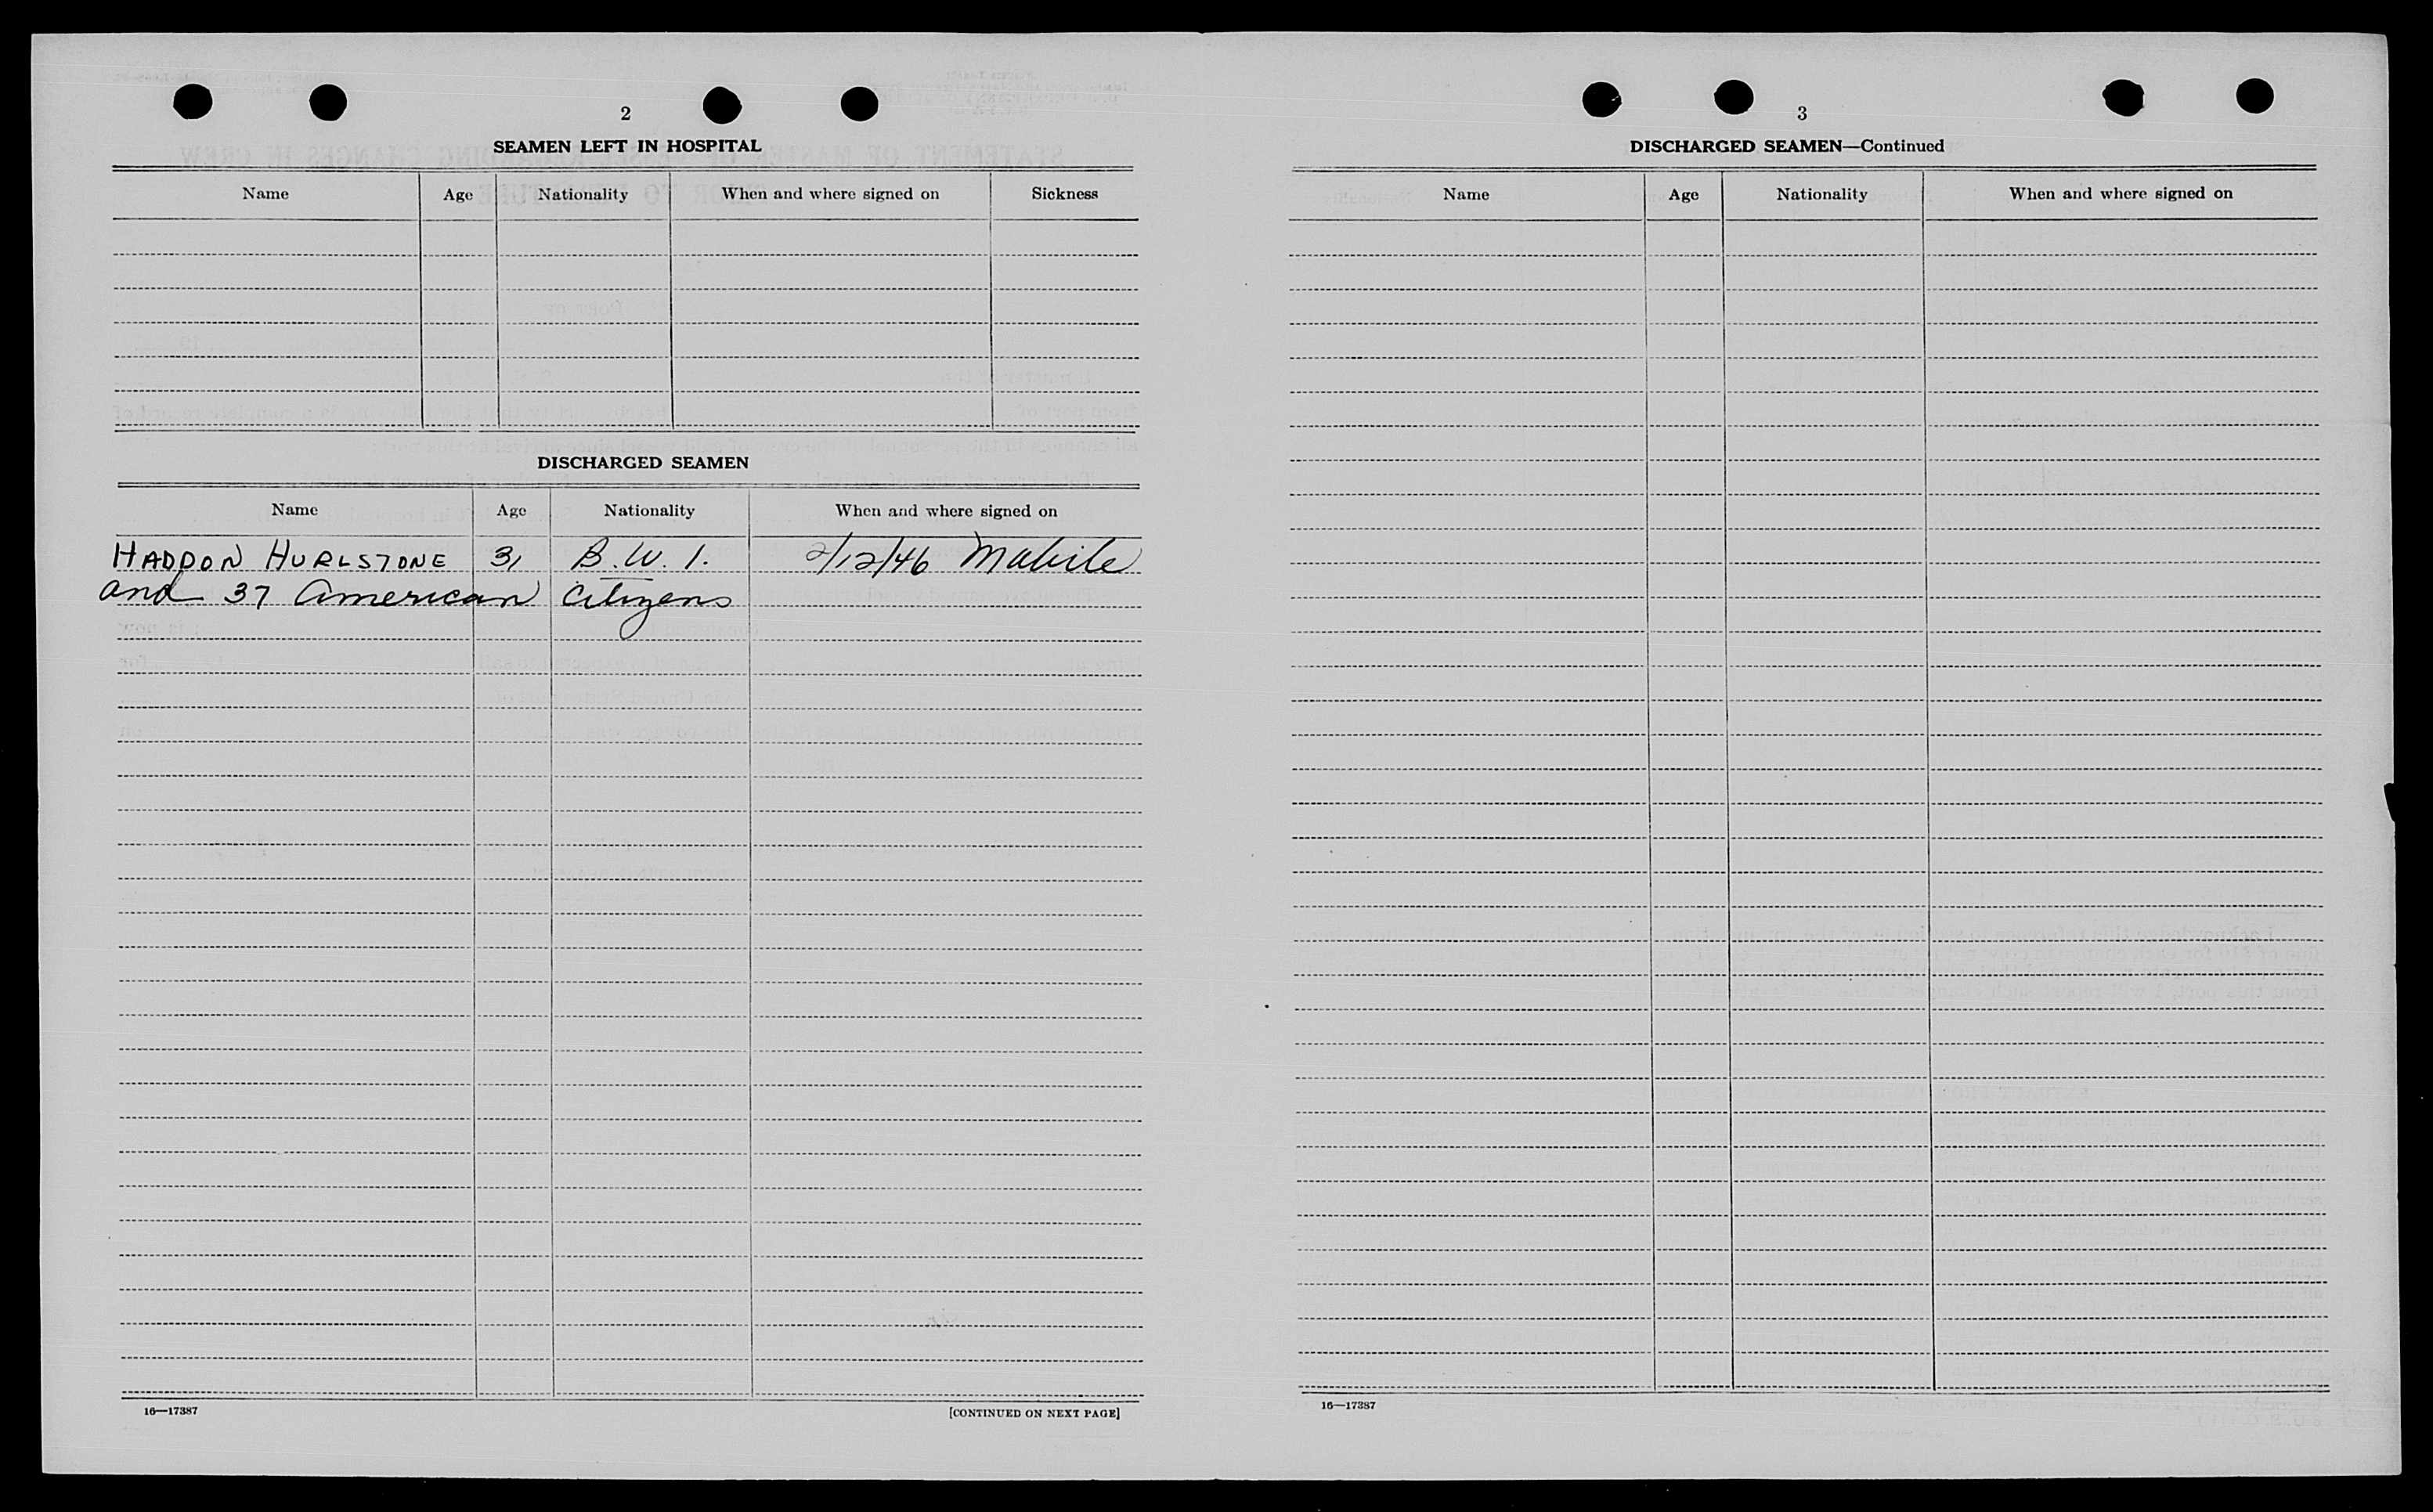 2
SEAMEN LEFT IN HOSPITAL
Name Age Nationality When and where signed on Sickness
DISCHARGED SEAMEN
Name Age Nationality When and where signed on
HADDON HURLSTONE 31 B.W.I. 2/12/46 Mobile
and 37 American Citizens
16—17387 [CONTINUED ON NEXT PAGE]
3
DISCHARGED SEAMEN—Continued
Name Age Nationality When and where signed on
16—17387